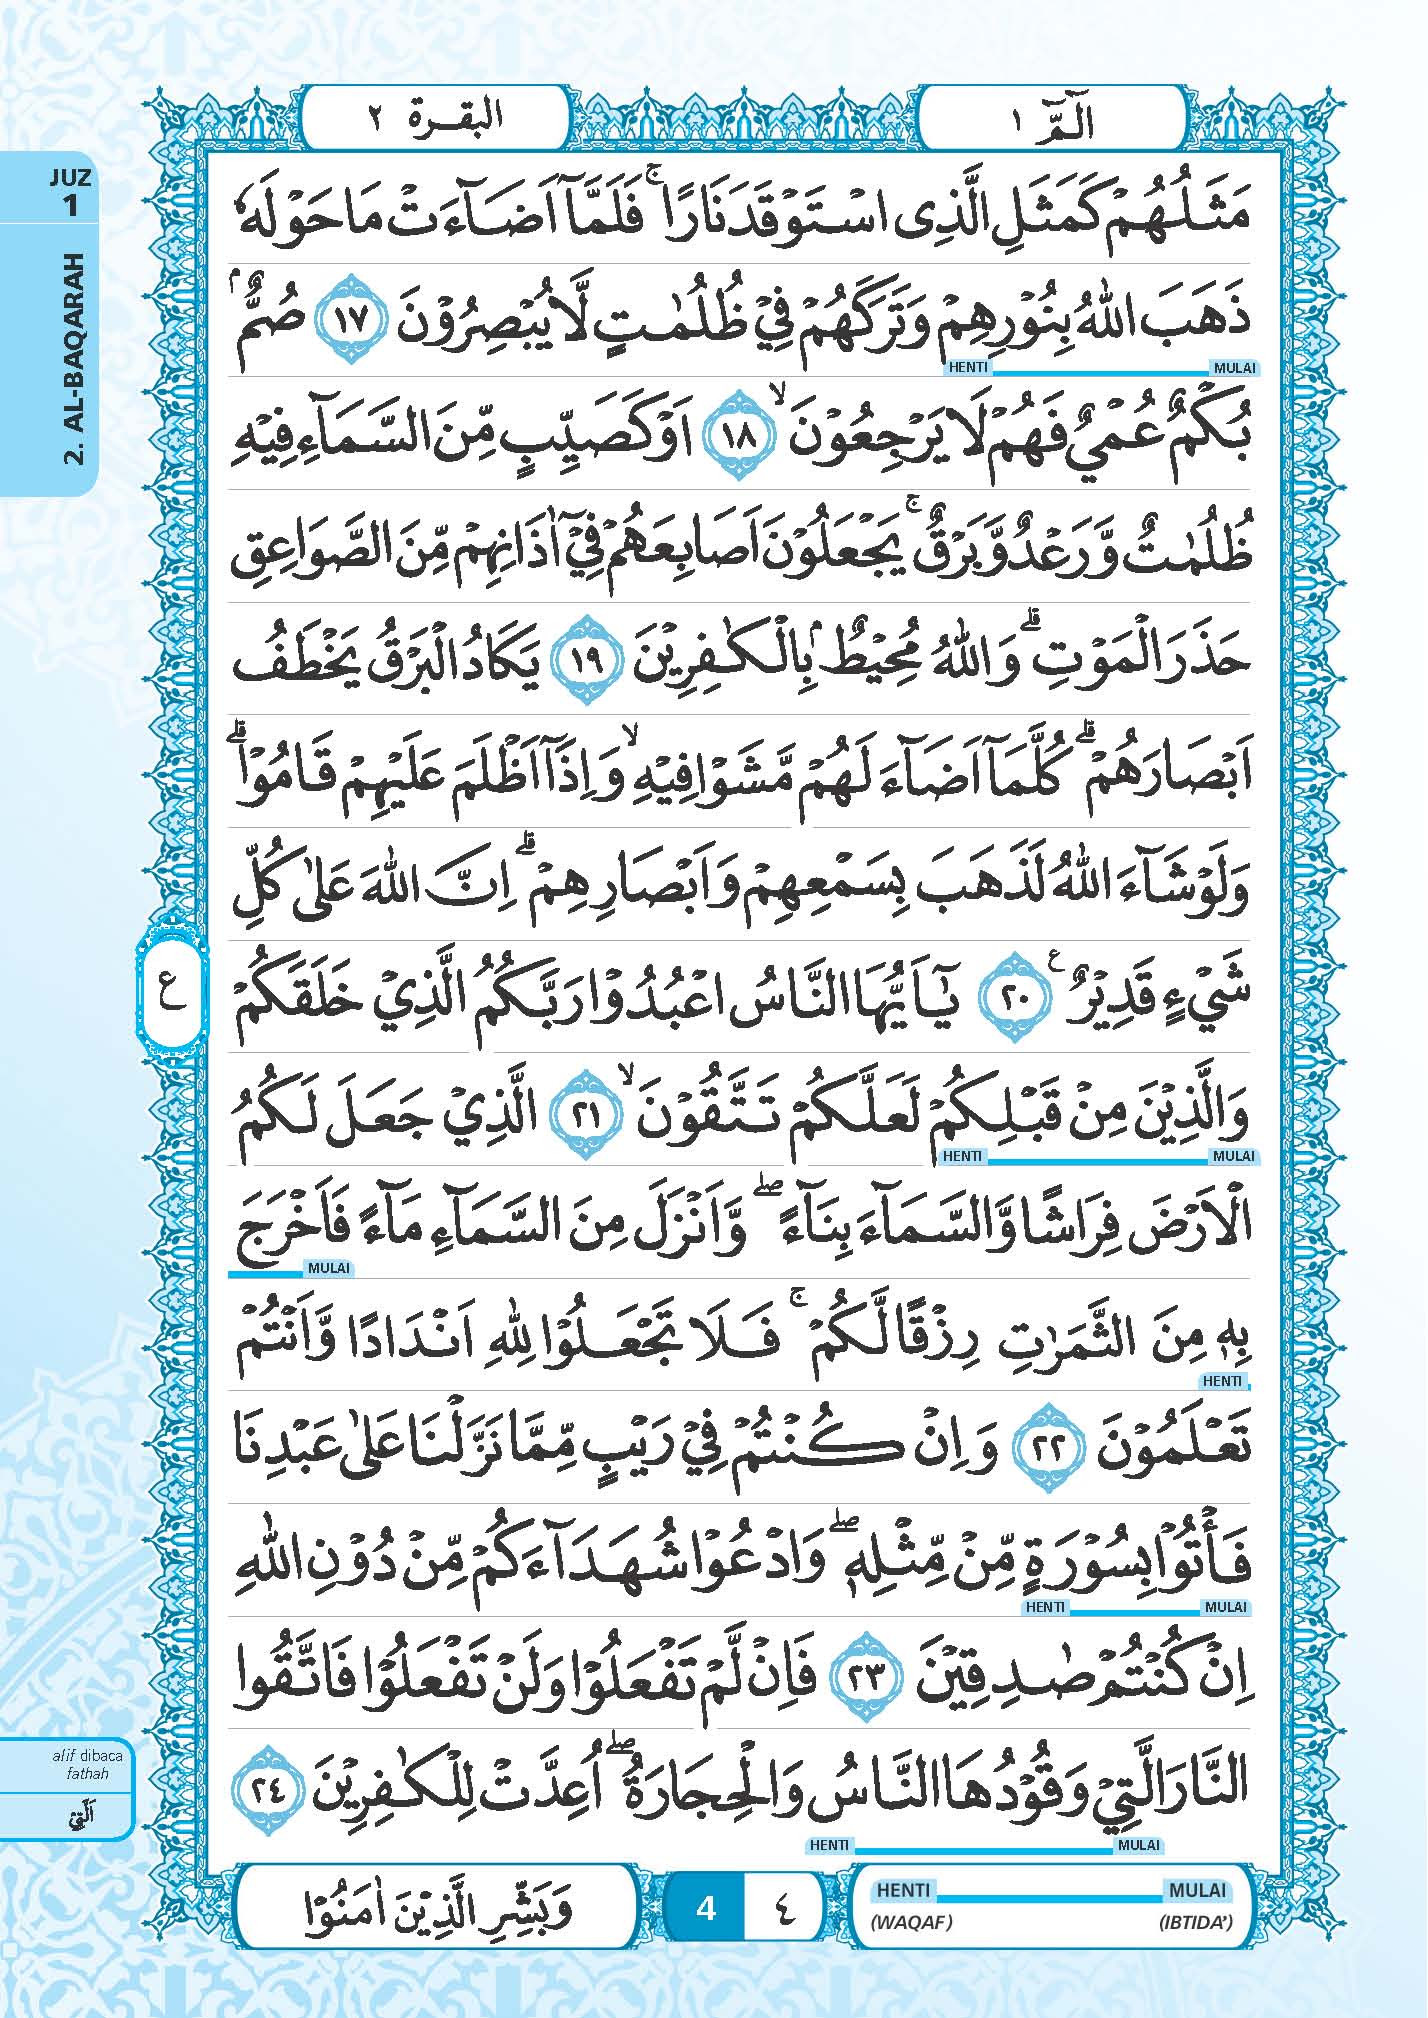 الٓمّٓ ١
البقرة ٢
JUZ
1
2. AL-BAQARAH
مَثَلُهُمْ كَمَثَلِ الَّذِى اسْتَوْقَدَ نَارًا ۚ فَلَمَّآ اَضَآءَتْ مَا حَوْلَهٗ
ذَهَبَ اللّٰهُ بِنُوْرِهِمْ وَتَرَكَهُمْ فِيْ ظُلُمٰتٍ لَّا يُبْصِرُوْنَ ١٧ صُمٌّ ۢ
HENTI MULAI
بُكْمٌ عُمْيٌ فَهُمْ لَا يَرْجِعُوْنَ ۙ ١٨ اَوْ كَصَيِّبٍ مِّنَ السَّمَآءِ فِيْهِ
ظُلُمٰتٌ وَّرَعْدٌ وَّبَرْقٌ ۚ يَجْعَلُوْنَ اَصَابِعَهُمْ فِيْٓ اٰذَانِهِمْ مِّنَ الصَّوَاعِقِ
حَذَرَ الْمَوْتِ ۗ وَاللّٰهُ مُحِيْطٌ ۢ بِالْكٰفِرِيْنَ ١٩ يَكَادُ الْبَرْقُ يَخْطَفُ
اَبْصَارَهُمْ ۗ كُلَّمَآ اَضَآءَ لَهُمْ مَّشَوْا فِيْهِ ۙ وَاِذَآ اَظْلَمَ عَلَيْهِمْ قَامُوْا ۗ
وَلَوْ شَآءَ اللّٰهُ لَذَهَبَ بِسَمْعِهِمْ وَاَبْصَارِهِمْ ۗ اِنَّ اللّٰهَ عَلٰى كُلِّ
شَيْءٍ قَدِيْرٌ ࣖ ٢٠ يٰٓاَيُّهَا النَّاسُ اعْبُدُوْا رَبَّكُمُ الَّذِيْ خَلَقَكُمْ
ع
وَالَّذِيْنَ مِنْ قَبْلِكُمْ لَعَلَّكُمْ تَتَّقُوْنَ ۙ ٢١ الَّذِيْ جَعَلَ لَكُمُ
HENTI MULAI
الْاَرْضَ فِرَاشًا وَّالسَّمَآءَ بِنَآءً ۖ وَّاَنْزَلَ مِنَ السَّمَآءِ مَآءً فَاَخْرَجَ
MULAI
بِهٖ مِنَ الثَّمَرٰتِ رِزْقًا لَّكُمْ ۚ فَلَا تَجْعَلُوْا لِلّٰهِ اَنْدَادًا وَّاَنْتُمْ
HENTI
تَعْلَمُوْنَ ٢٢ وَاِنْ كُنْتُمْ فِيْ رَيْبٍ مِّمَّا نَزَّلْنَا عَلٰى عَبْدِنَا
فَأْتُوْا بِسُوْرَةٍ مِّنْ مِّثْلِهٖ ۖ وَادْعُوْا شُهَدَآءَكُمْ مِّنْ دُوْنِ اللّٰهِ
HENTI MULAI
اِنْ كُنْتُمْ صٰدِقِيْنَ ٢٣ فَاِنْ لَّمْ تَفْعَلُوْا وَلَنْ تَفْعَلُوْا فَاتَّقُوا
النَّارَ الَّتِيْ وَقُوْدُهَا النَّاسُ وَالْحِجَارَةُ ۖ اُعِدَّتْ لِلْكٰفِرِيْنَ ٢٤
HENTI MULAI
alif dibaca
fathah
اَلَّتِيْ
وَبَشِّرِ الَّذِيْنَ اٰمَنُوْا
4 ٤
HENTI MULAI
(WAQAF) (IBTIDA')